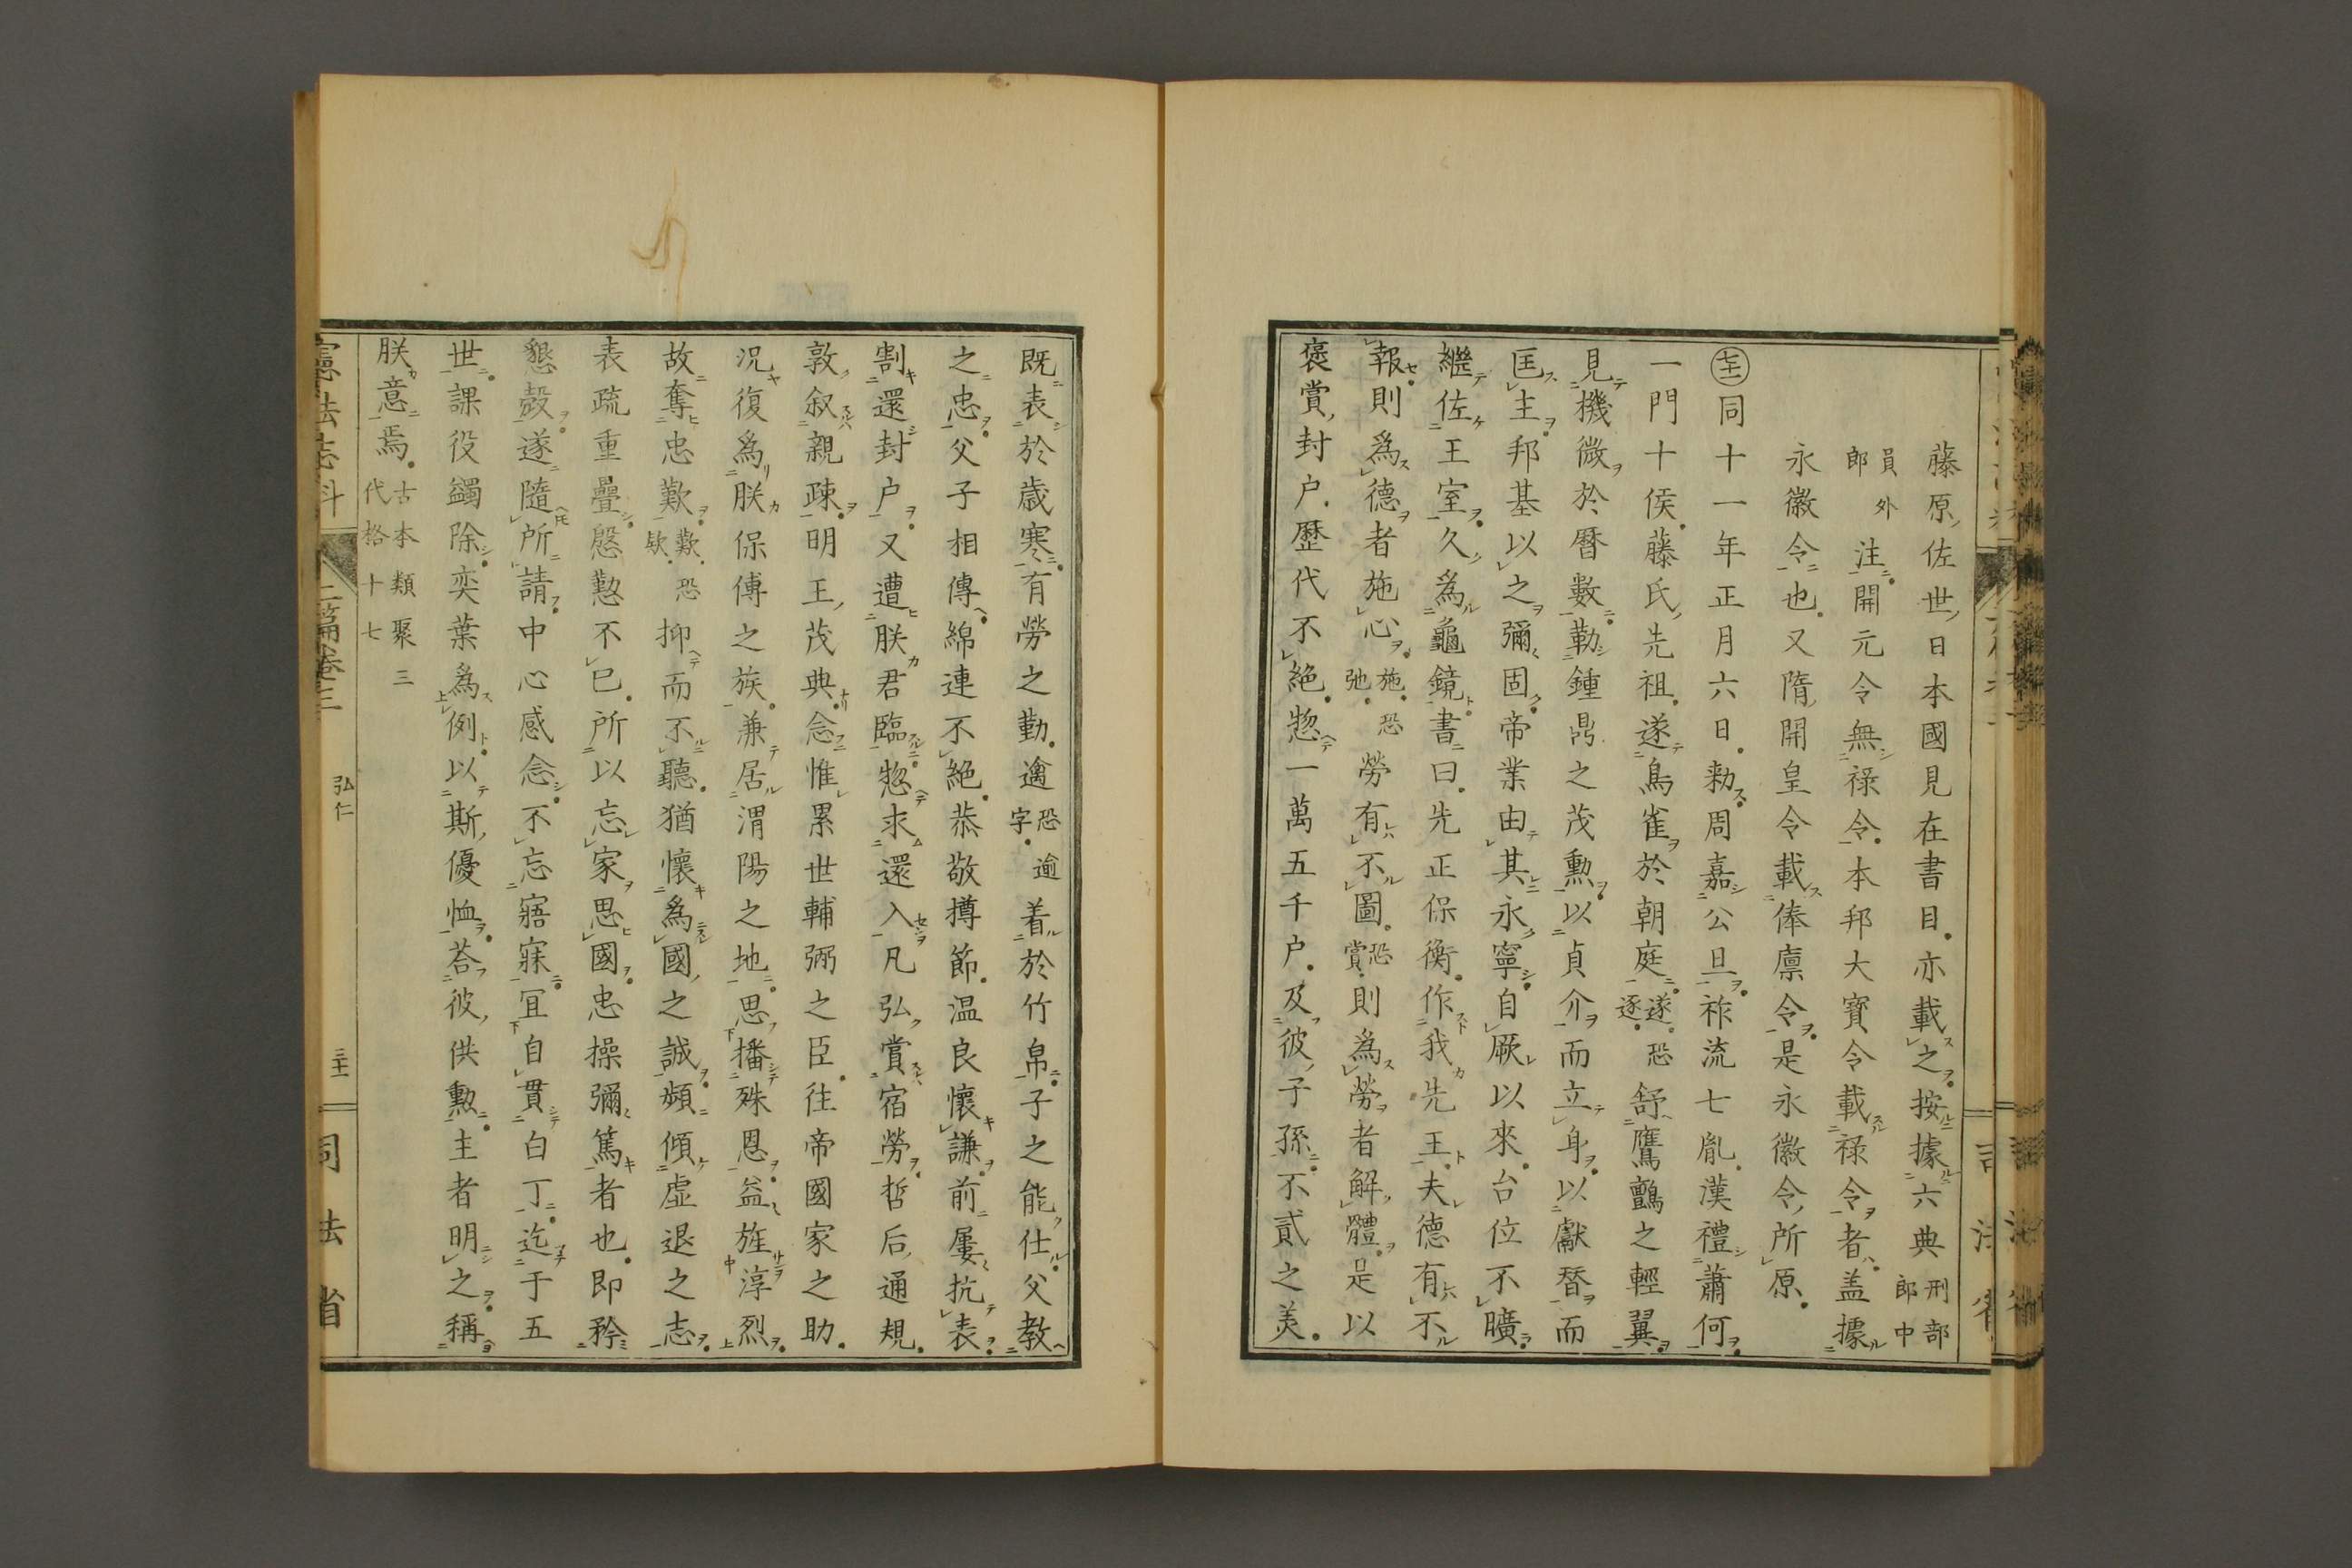 藤原佐世日本國見在書目亦載之按據六典刑部郎中
員外郎注開元令無祿令本邦大寶令載祿令者盖據
永徽令也又隋開皇令載俸廪令是永徽令所原
同十一年正月六日勅周嘉公旦祚流七胤漢禮蕭何
一門十侯藤氏先祖遂鳥雀於朝庭遂恐逐舒鷹鸇之輕翼
見機微於曆數勒鍾鼎之茂勲以貞介而立身以獻替而
匡主邦基以之彌固帝業由其永寧自厥以來台位不曠
繼佐王室久為龜鏡書曰先正保衡作我先王夫德有不
報則為德者施心施恐弛勞有不圖恐賞則為勞者解體是以
褒賞封户歷代不絶惣一萬五千户及彼子孫不貳之美
既表於歳寒有勞之勤邊恐逾字着於竹帛子之能仕父教
之忠父子相傳綿連不絶恭敬撙節温良懷謙前屢抗表
割還封户又遭朕君臨惣求還入凡弘賞宿勞哲后通規
敦叙親疎明王茂典念惟累世輔弼之臣往帝國家之助
況復為朕保傅之族兼居渭陽之地思播殊恩益旌淳烈
故奪忠歎歎恐欵抑而不聽猶懷為國之誠頻傾虚退之志
表疏重疊慇懃不已所以忘家思國忠操彌篤者也即矜
懇愨遂隨所請中心感念不忘寤寐宜自貫白丁迄于五
世課役蠲除奕葉為例以斯優恤荅彼供勲主者明之稱
朕意焉古本類聚三代格十七
憲法志料 二篇卷三 弘仁 司法省